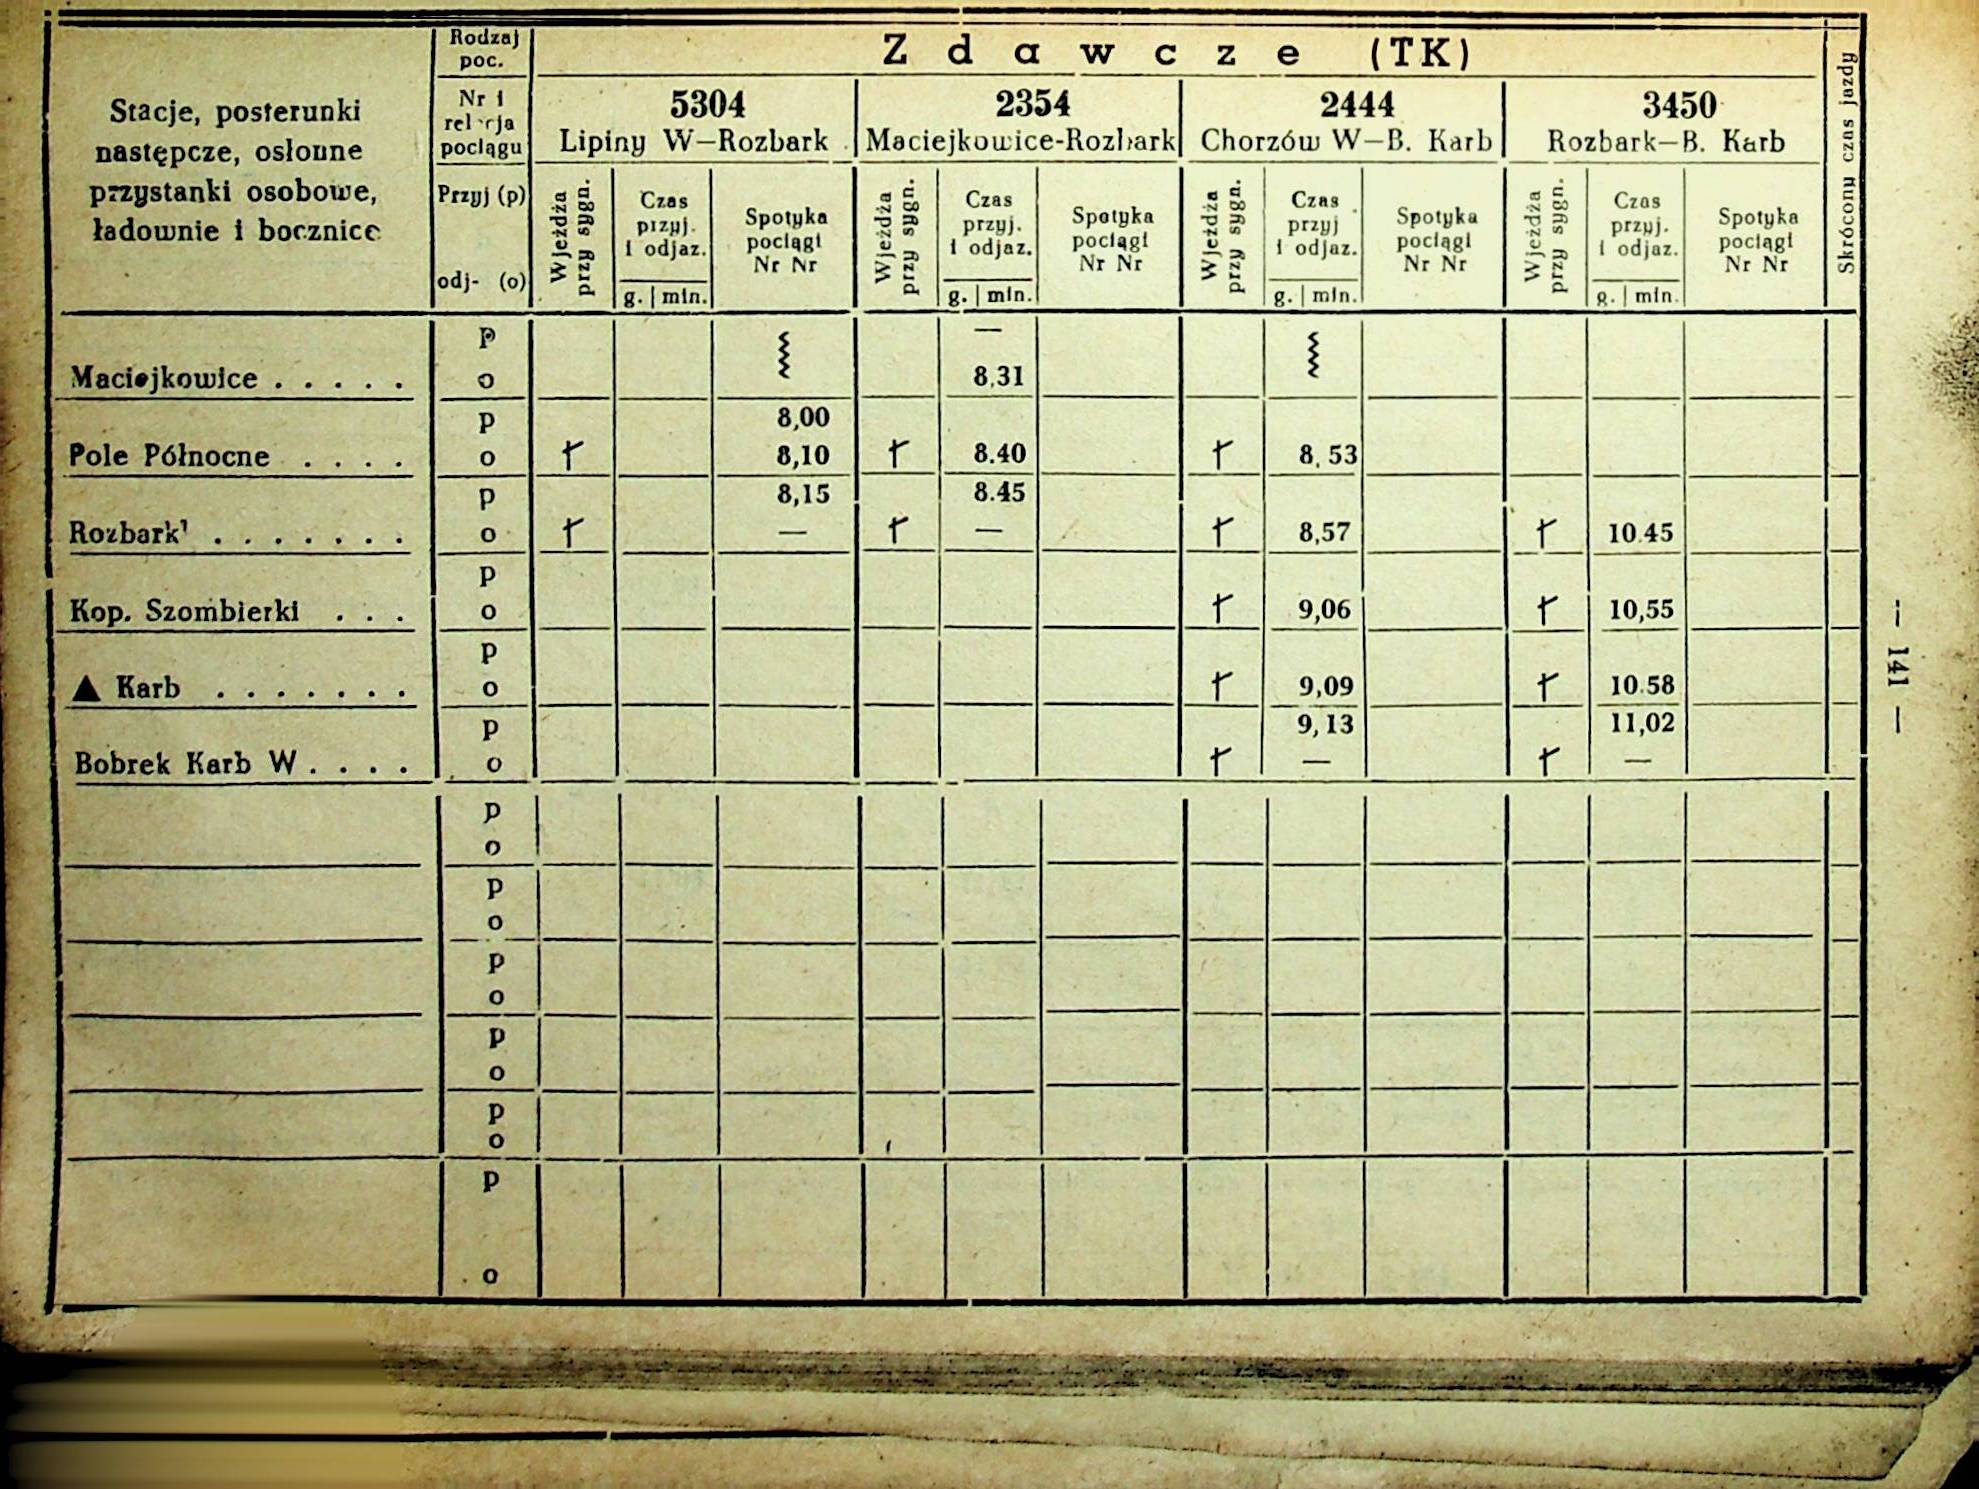 Rodzaj poc.
Zdawcze (TK)
Skrócony czas jazdy
Stacje, posterunki
następcze, osłonne
przystanki osobowe,
ładownie i bocznice
Nr i
relacja
pociągu
5304
Lipiny W—Rozbark
2354
Maciejkowice-Rozbark
2444
Chorzów W—B. Karb
3450
Rozbark—B. Karb
Przyj (p)
odj- (o)
Wjeżdża przy sygn.
Czas przyj. i odjaz.
g. | min.
Spotyka pociągi Nr Nr
Wjeżdża przy sygn.
Czas przyj. i odjaz.
g. | min.
Spotyka pociągi Nr Nr
Wjeżdża przy sygn.
Czas przyj i odjaz.
g. | min.
Spotyka pociągi Nr Nr
Wjeżdża przy sygn.
Czas przyj. i odjaz.
g. | min.
Spotyka pociągi Nr Nr
p —
Maciejkowice . . . . . o 8,31
p 8,00
Pole Północne . . . . o 8,10 8.40 8,53
p 8,15 8.45
Rozbark¹ . . . . . . . o — — 8,57 10.45
p
Kop. Szombierki . . . o 9,06 10,55
p
▲ Karb . . . . . . . o 9,09 10.58
p 9,13 11,02
Bobrek Karb W . . . . o — —
p
o
p
o
p
o
p
o
p
o
p
o
— 141 —